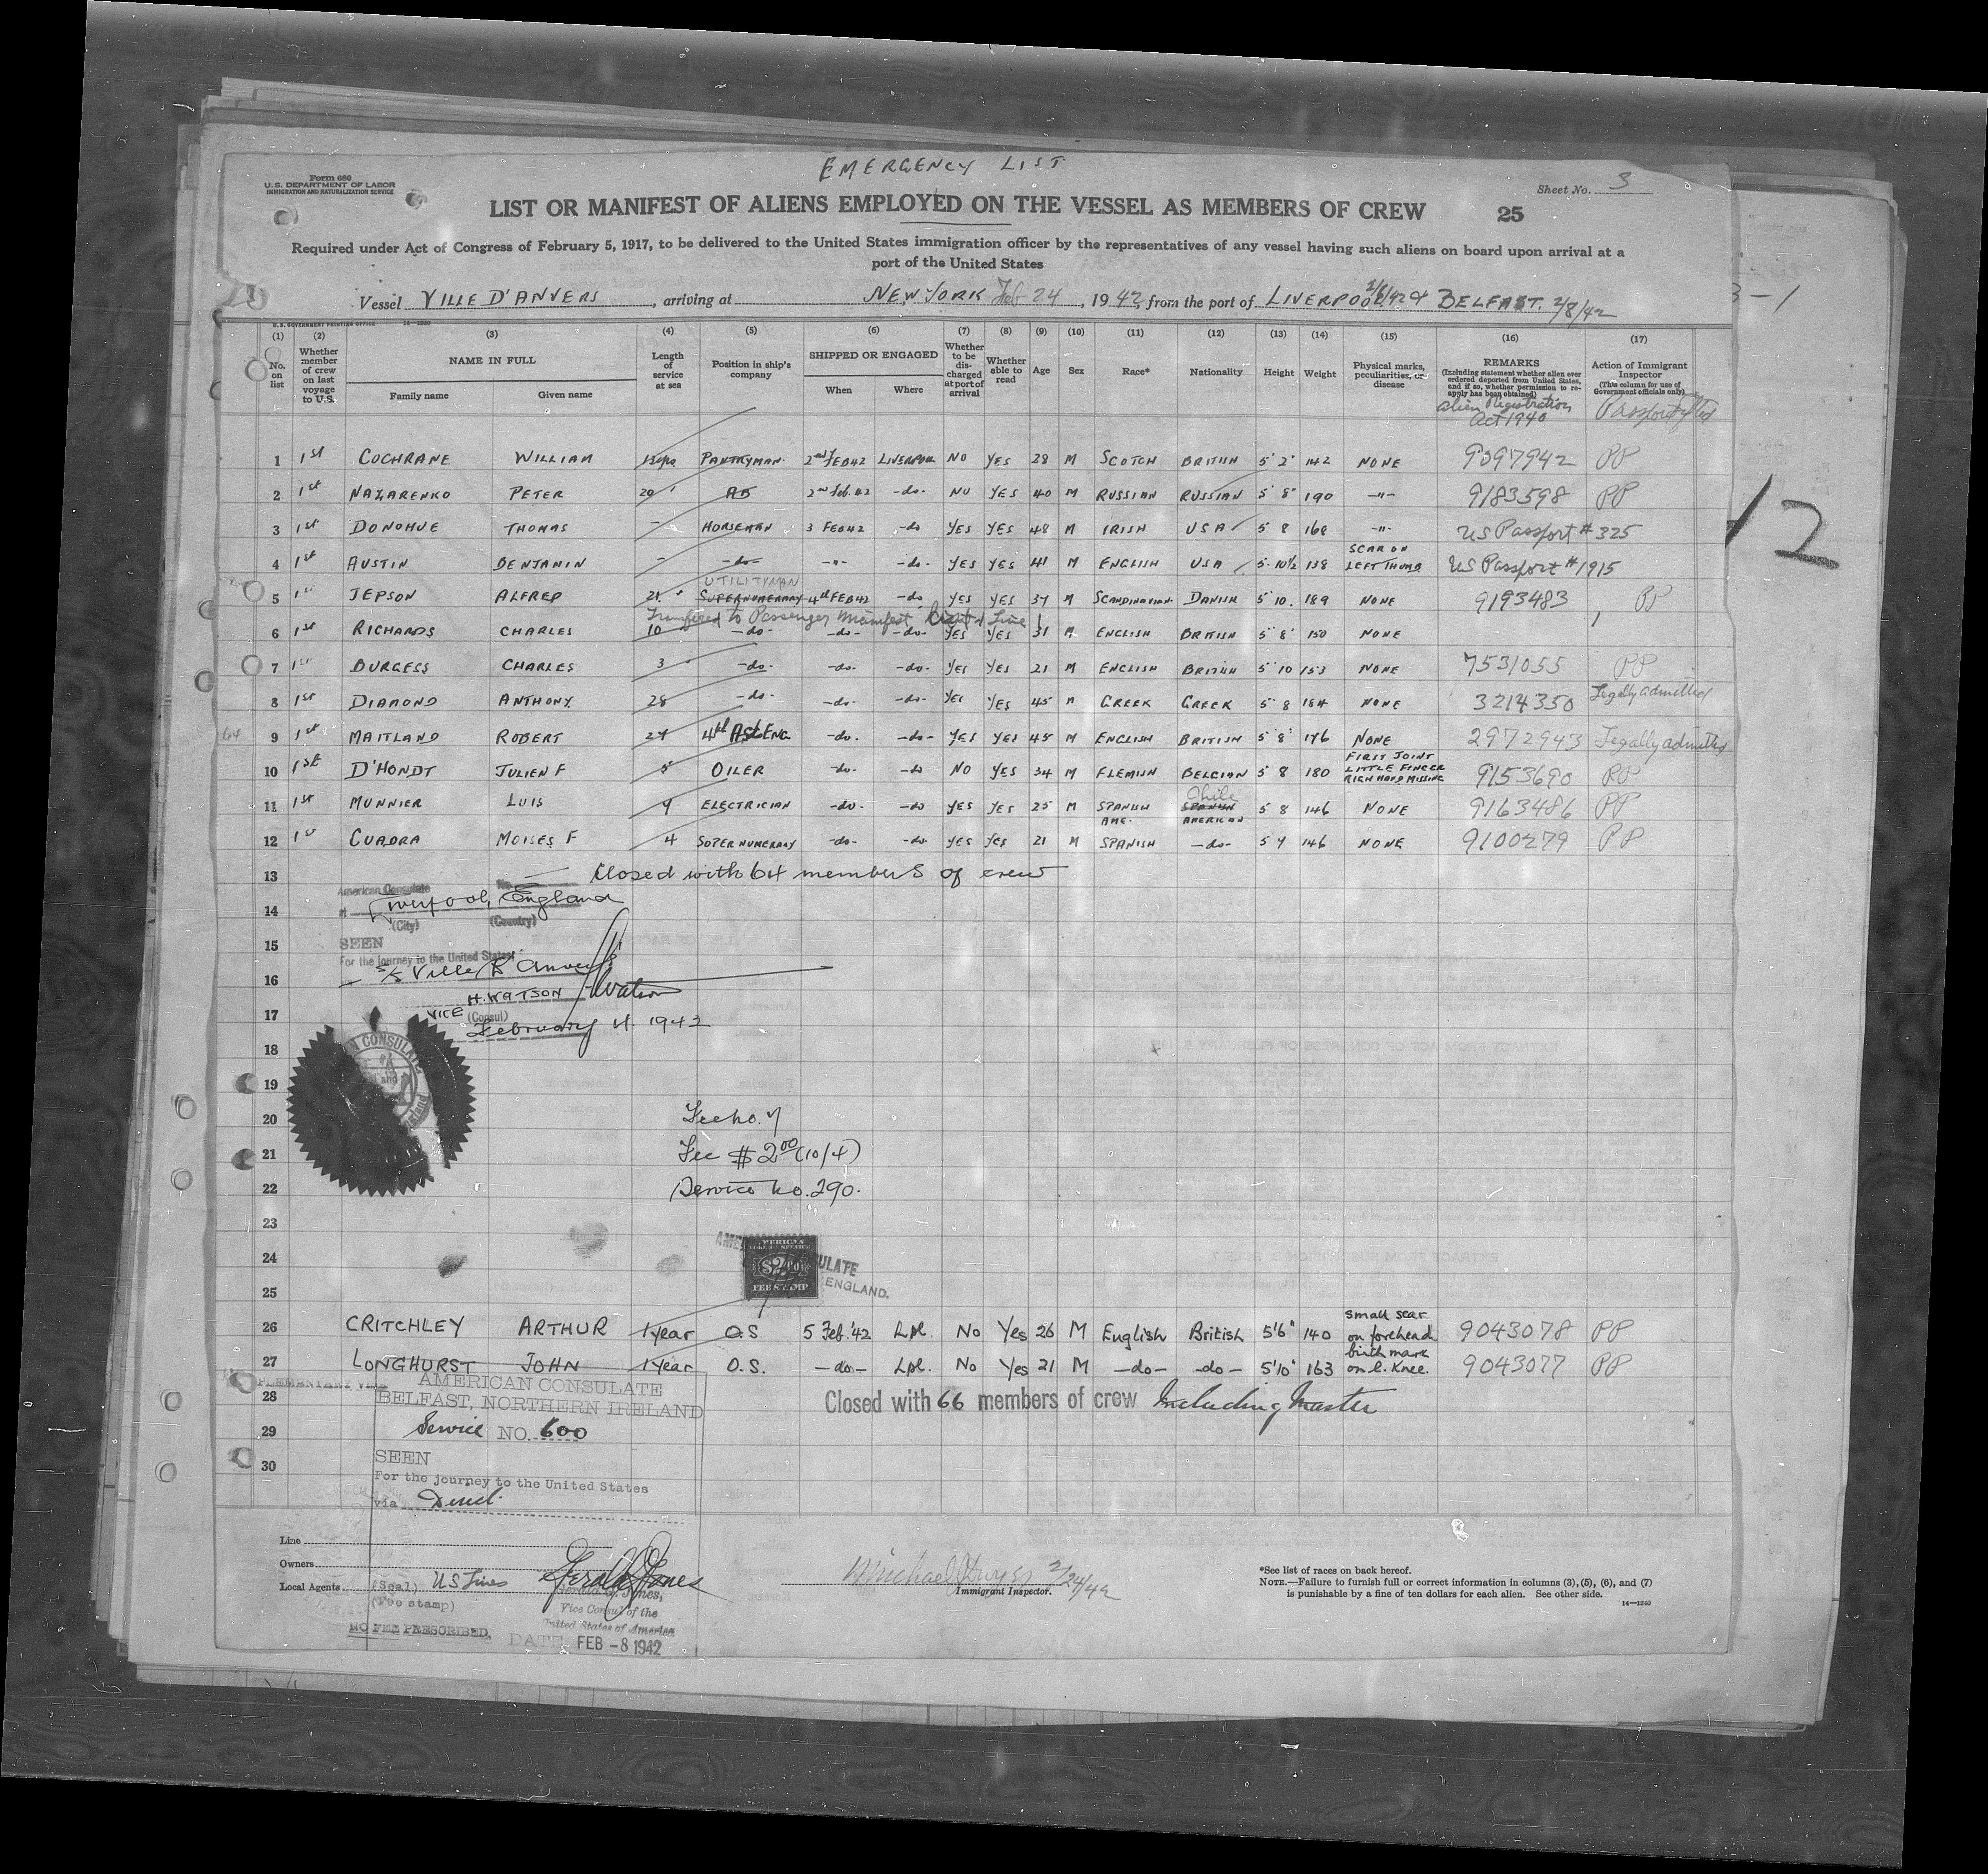 EMERGENCY LIST
Form 680
U.S. DEPARTMENT OF LABOR
IMMIGRATION AND NATURALIZATION SERVICE
Sheet No. 3
LIST OR MANIFEST OF ALIENS EMPLOYED ON THE VESSEL AS MEMBERS OF CREW 25
Required under Act of Congress of February 5, 1917, to be delivered to the United States immigration officer by the representatives of any vessel having such aliens on board upon arrival at a
port of the United States
Vessel VILLE D'ANVERS, arriving at NEW YORK Feb 24, 1942, from the port of LIVERPOOL BELFAST. 2/8/42
U.S. GOVERNMENT PRINTING OFFICE 14—1240
(1) (2) (3) (4) (5) (6) (7) (8) (9) (10) (11) (12) (13) (14) (15) (16) (17)
No. on list
Whether member of crew on last voyage to U.S.
NAME IN FULL
Family name Given name
Length of service at sea
Position in ship's company
SHIPPED OR ENGAGED
When Where
Whether to be discharged at port of arrival
Whether able to read
Age
Sex
Race*
Nationality
Height
Weight
Physical marks, peculiarities, or disease
REMARKS
(Including statement whether alien ever ordered deported from United States, and if so, whether permission to reapply has been obtained)
Alien Registration
Act 1940
Action of Immigrant Inspector
(This column for use of Government officials only)
1 1st COCHRANE WILLIAM PANTRYMAN 2nd FEB 42 LIVERPOOL NO YES 28 M SCOTCH BRITISH 5' 2" 142 NONE 9397942 PP
2 1st NAZARENKO PETER 20 " AB 2nd Feb. 42 -do- NO YES 40 M RUSSIAN RUSSIAN 5' 8" 190 -"- 9183598 PP
3 1st DONOHUE THOMAS - HORSEMAN 3 FEB 42 -do YES YES 48 M IRISH USA 5 8 168 -"- US Passport # 325
4 1st AUSTIN BENJAMIN - -do- -"- -do- YES YES 41 M ENGLISH USA 5-10½ 138 SCAR ON LEFT THUMB US Passport # 1915
UTILITYMAN
5 1st JEPSON ALFRED 21 " SUPERNUMERARY 4th FEB 42 -do YES YES 37 M SCANDINAVIAN DANISH 5' 10. 189 NONE 9193483 PP
Transfered to Passenger Manifest Line 1
6 1st RICHARDS CHARLES 10 -do- -do- -do- YES YES 31 M ENGLISH BRITISH 5' 8" 150 NONE
7 1st BURGESS CHARLES 3 -do- -do- -do- YES YES 21 M ENGLISH BRITISH 5' 10 153 NONE 7531055 PP
8 1st DIAMOND ANTHONY 28 -do- -do- -do- YES YES 45 M GREEK GREEK 5' 8 184 NONE 3214350 Legally admitted
64 9 1st MAITLAND ROBERT 27 4th ASst ENG -do- -do- YES YES 45 M ENGLISH BRITISH 5' 8" 176 NONE 2972943 Legally admitted
10 1st D'HONDT JULIEN F 5 OILER -do- -do NO YES 34 M FLEMISH BELGIAN 5 8 180 FIRST JOINT LITTLE FINGER RIGH HAND MISSING 9153690 PP
11 1st MUNNIER LUIS 9 ELECTRICIAN -do- -do YES YES 25 M SPANISH AME. Chile SPANISH AMERICAN 5 8 146 NONE 9163486 PP
12 1st CUADRA MOISES F 4 SUPERNUMERARY -do- -do YES YES 21 M SPANISH -do- 5 7 146 NONE 9100279 PP
13 Closed with 64 members of crew
American Consulate No.
14 at Liverpool, England
(City) (Country)
15 SEEN
For the journey to the United States
16 S/S Ville D'Anvers
H. WATSON HWatson
17 VICE (Consul)
February 4. 1942
18
19
20 Fee No. 7
21 Fee $2.00 (10/4)
22 Service No. 290.
23
24
25
AMERICAN CONSULATE
ENGLAND.
FEE STAMP
26 CRITCHLEY ARTHUR 1 year O.S 5 Feb. '42 Lpl. No Yes 26 M English British 5'6" 140 small scar on forehead 9043078 PP
27 LONGHURST JOHN 1 year O.S. -do- Lpl. No Yes 21 M -do- -do- 5'10" 163 birth mark on l. Knee. 9043077 PP
28 AMERICAN CONSULATE
BELFAST, NORTHERN IRELAND
Closed with 66 members of crew Including Master
29 Service NO. 600
30 SEEN
For the journey to the United States
via Direct
Line
Owners
Local Agents US Lines
(Seal)
(Fee stamp)
NO FEE PRESCRIBED.
Vice Consul of the
United States of America
DATE FEB -8 1942
Michael Dwyer 2/24/42
Immigrant Inspector.
*See list of races on back hereof.
NOTE.—Failure to furnish full or correct information in columns (3), (5), (6), and (7)
is punishable by a fine of ten dollars for each alien. See other side.
14—1240
12
3-1